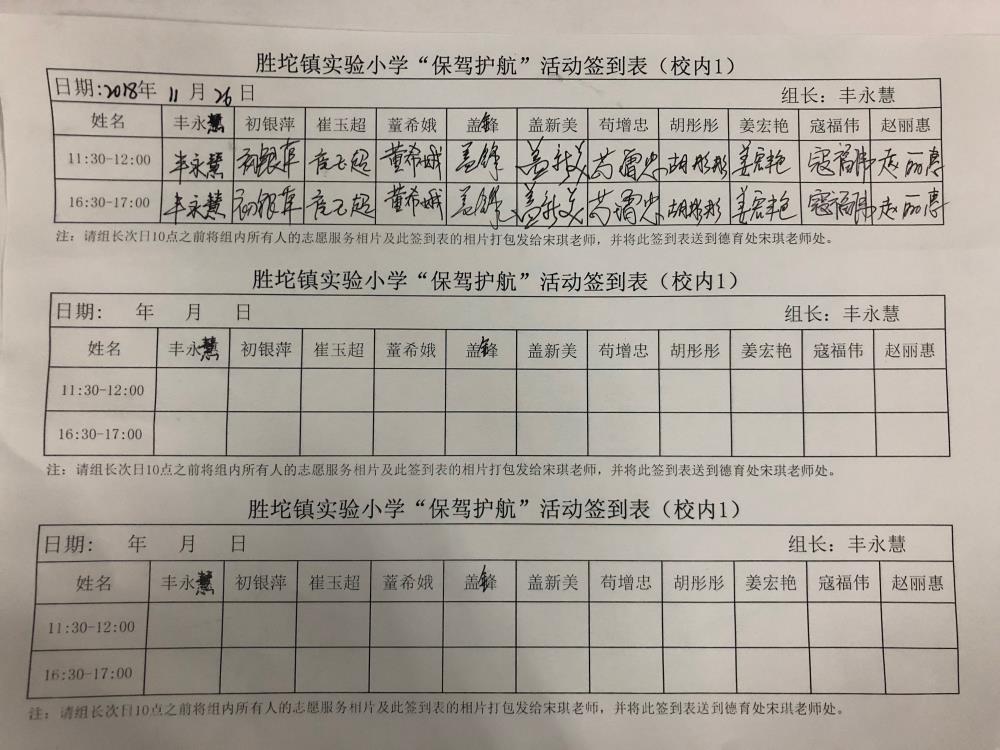 胜坨镇实验小学“保驾护航”活动签到表（校内1）
日期:2018年 11 月 26 日 组长：丰永慧
姓名 丰永慧 初银萍 崔玉超 董希娥 盖锋 盖新美 苟增忠 胡彤彤 姜宏艳 寇福伟 赵丽惠
11:30-12:00 丰永慧 初银萍 崔玉超 董希娥 盖锋 盖新美 苟增忠 胡彤彤 姜宏艳 寇福伟 赵丽惠
16:30-17:00 丰永慧 初银萍 崔玉超 董希娥 盖锋 盖新美 苟增忠 胡彤彤 姜宏艳 寇福伟 赵丽惠
注：请组长次日10点之前将组内所有人的志愿服务相片及此签到表的相片打包发给宋琪老师，并将此签到表送到德育处宋琪老师处。
胜坨镇实验小学“保驾护航”活动签到表（校内1）
日期: 年 月 日 组长：丰永慧
姓名 丰永慧 初银萍 崔玉超 董希娥 盖锋 盖新美 苟增忠 胡彤彤 姜宏艳 寇福伟 赵丽惠
11:30-12:00
16:30-17:00
注：请组长次日10点之前将组内所有人的志愿服务相片及此签到表的相片打包发给宋琪老师，并将此签到表送到德育处宋琪老师处。
胜坨镇实验小学“保驾护航”活动签到表（校内1）
日期: 年 月 日 组长：丰永慧
姓名 丰永慧 初银萍 崔玉超 董希娥 盖锋 盖新美 苟增忠 胡彤彤 姜宏艳 寇福伟 赵丽惠
11:30-12:00
16:30-17:00
注：请组长次日10点之前将组内所有人的志愿服务相片及此签到表的相片打包发给宋琪老师，并将此签到表送到德育处宋琪老师处。